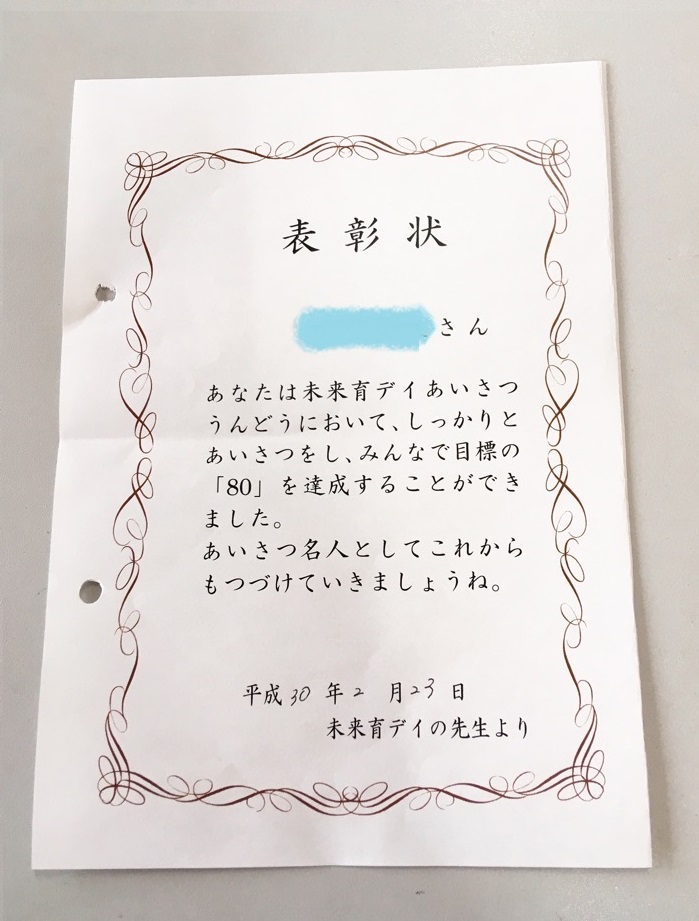 表彰状
さん
あなたは未来育デイあいさつ
うんどうにおいて、しっかりと
あいさつをし、みんなで目標の
「80」を達成することができ
ました。
あいさつ名人としてこれから
もつづけていきましょうね。
平成30年2月23日
未来育デイの先生より